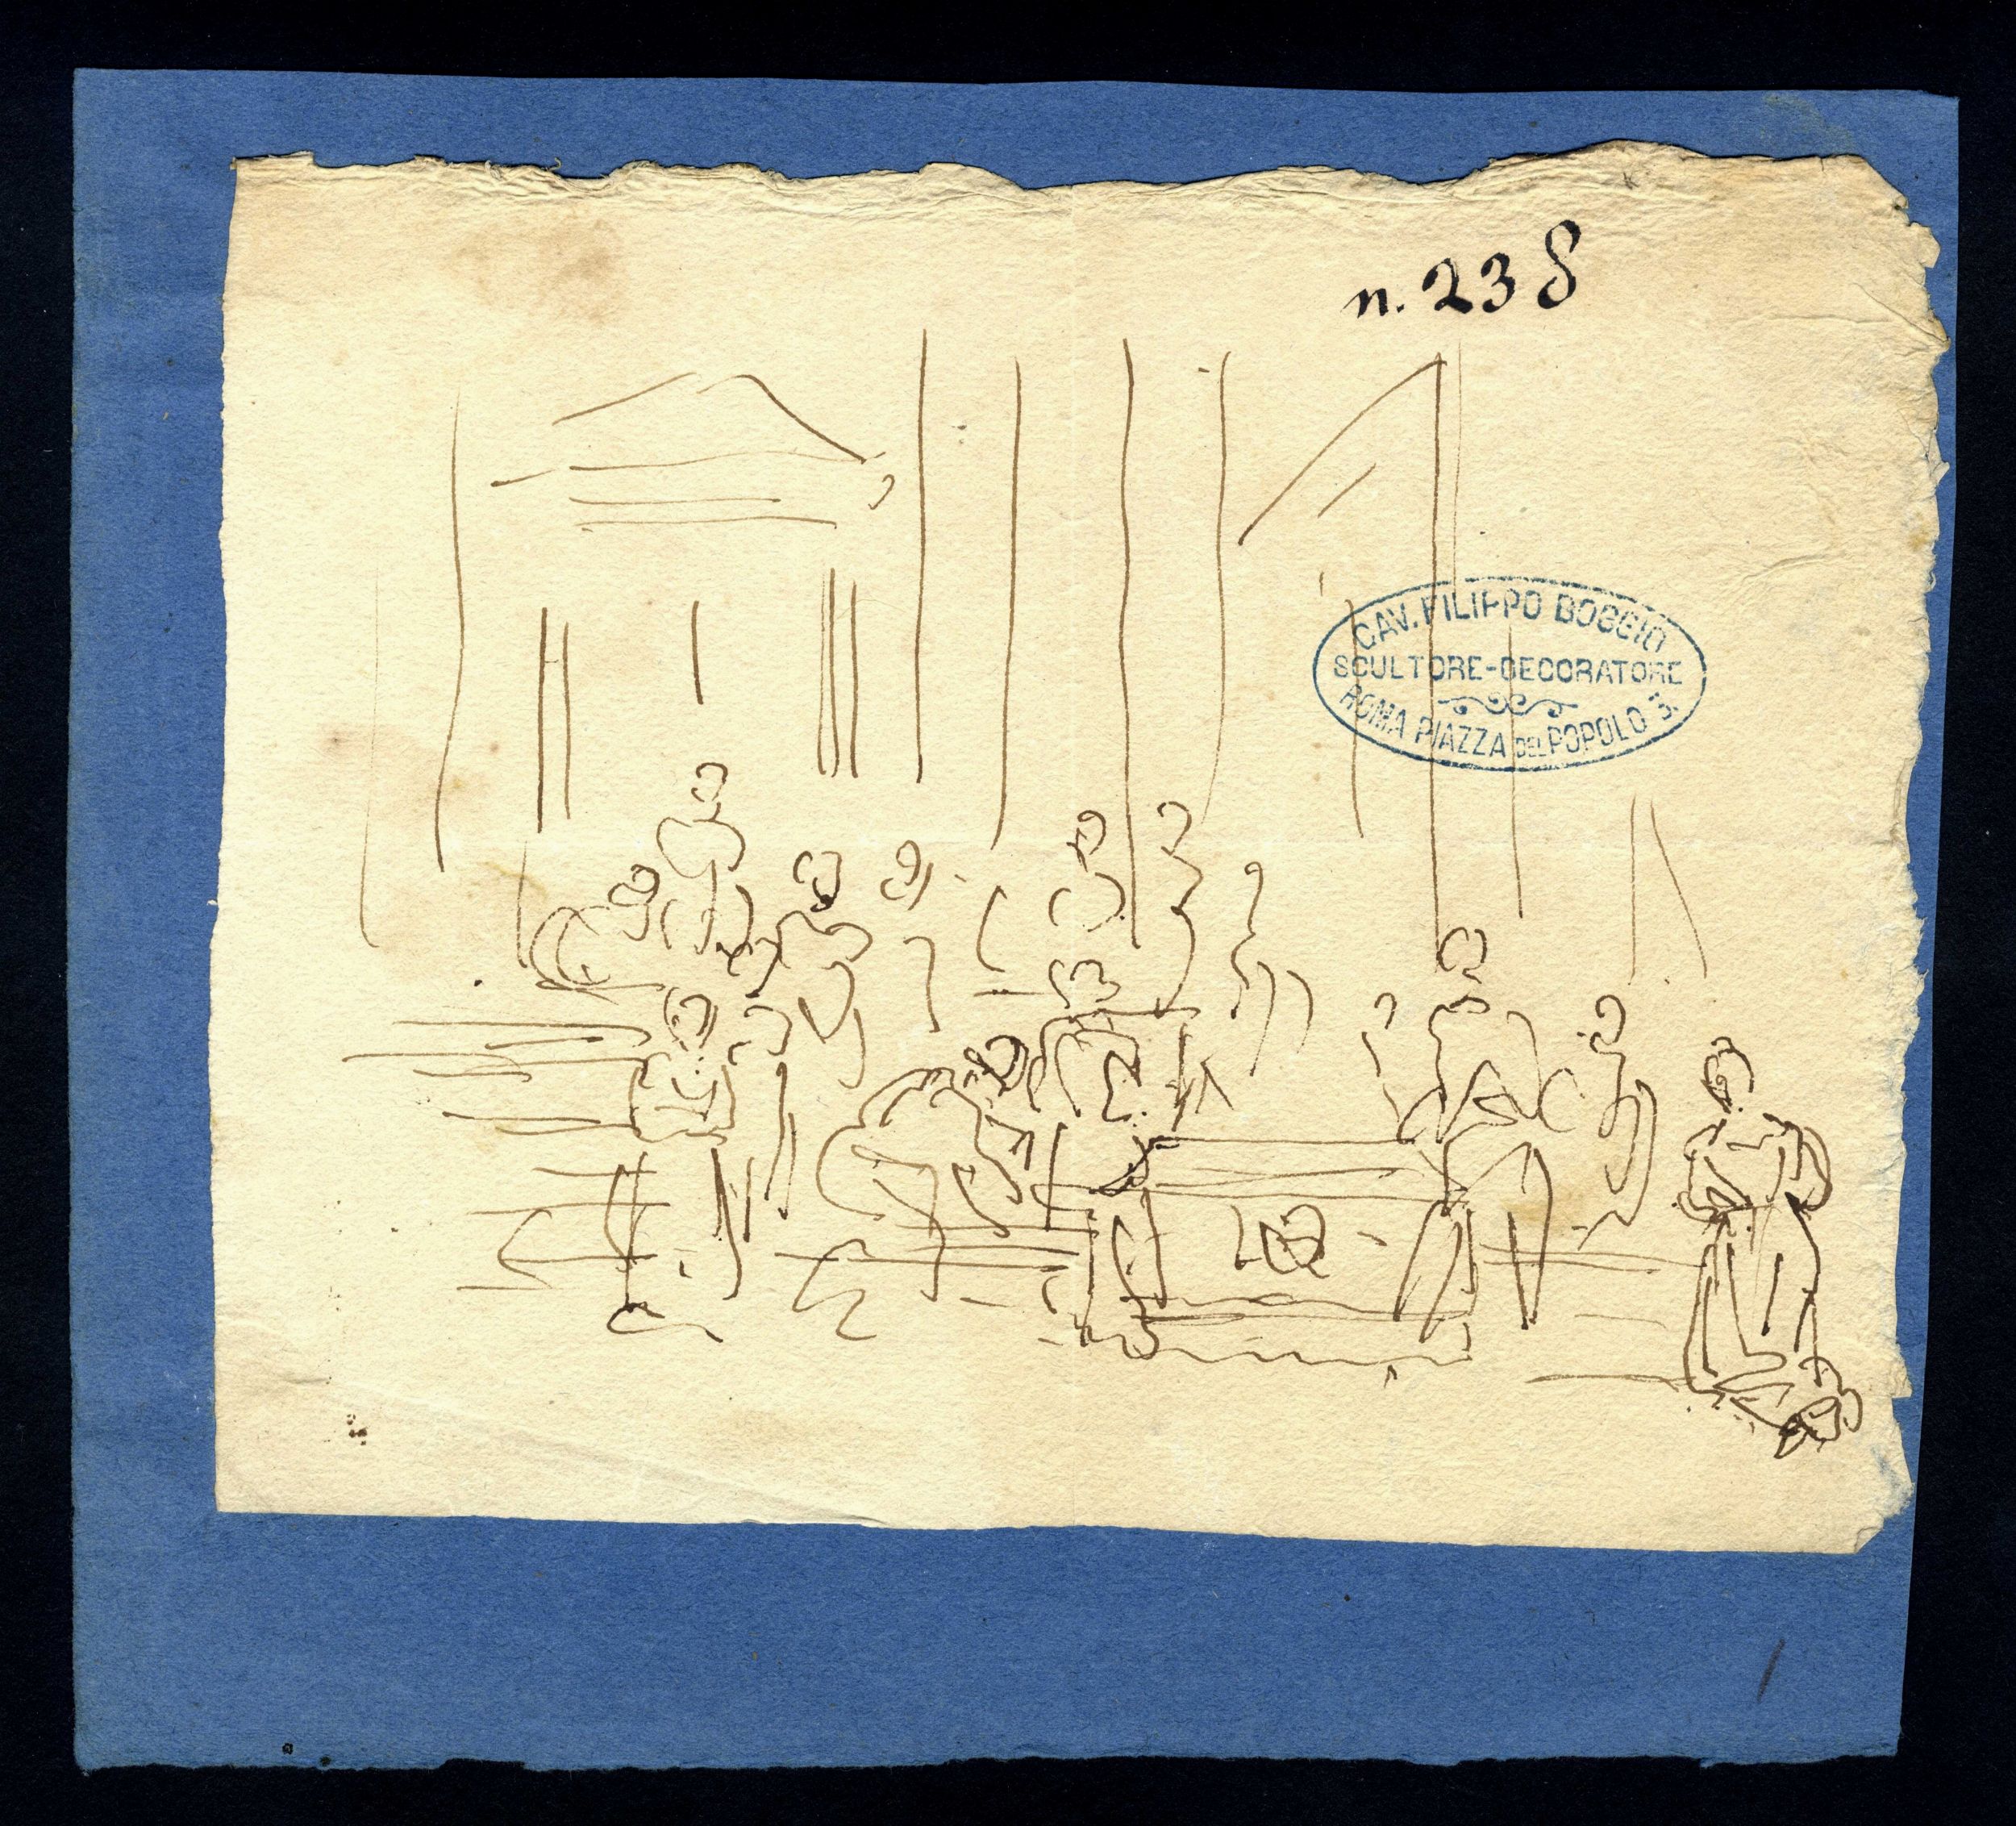 n. 238
CAV. FILIPPO BOGGIO
SCULTORE-DECORATORE
ROMA PIAZZA DEL POPOLO 3.